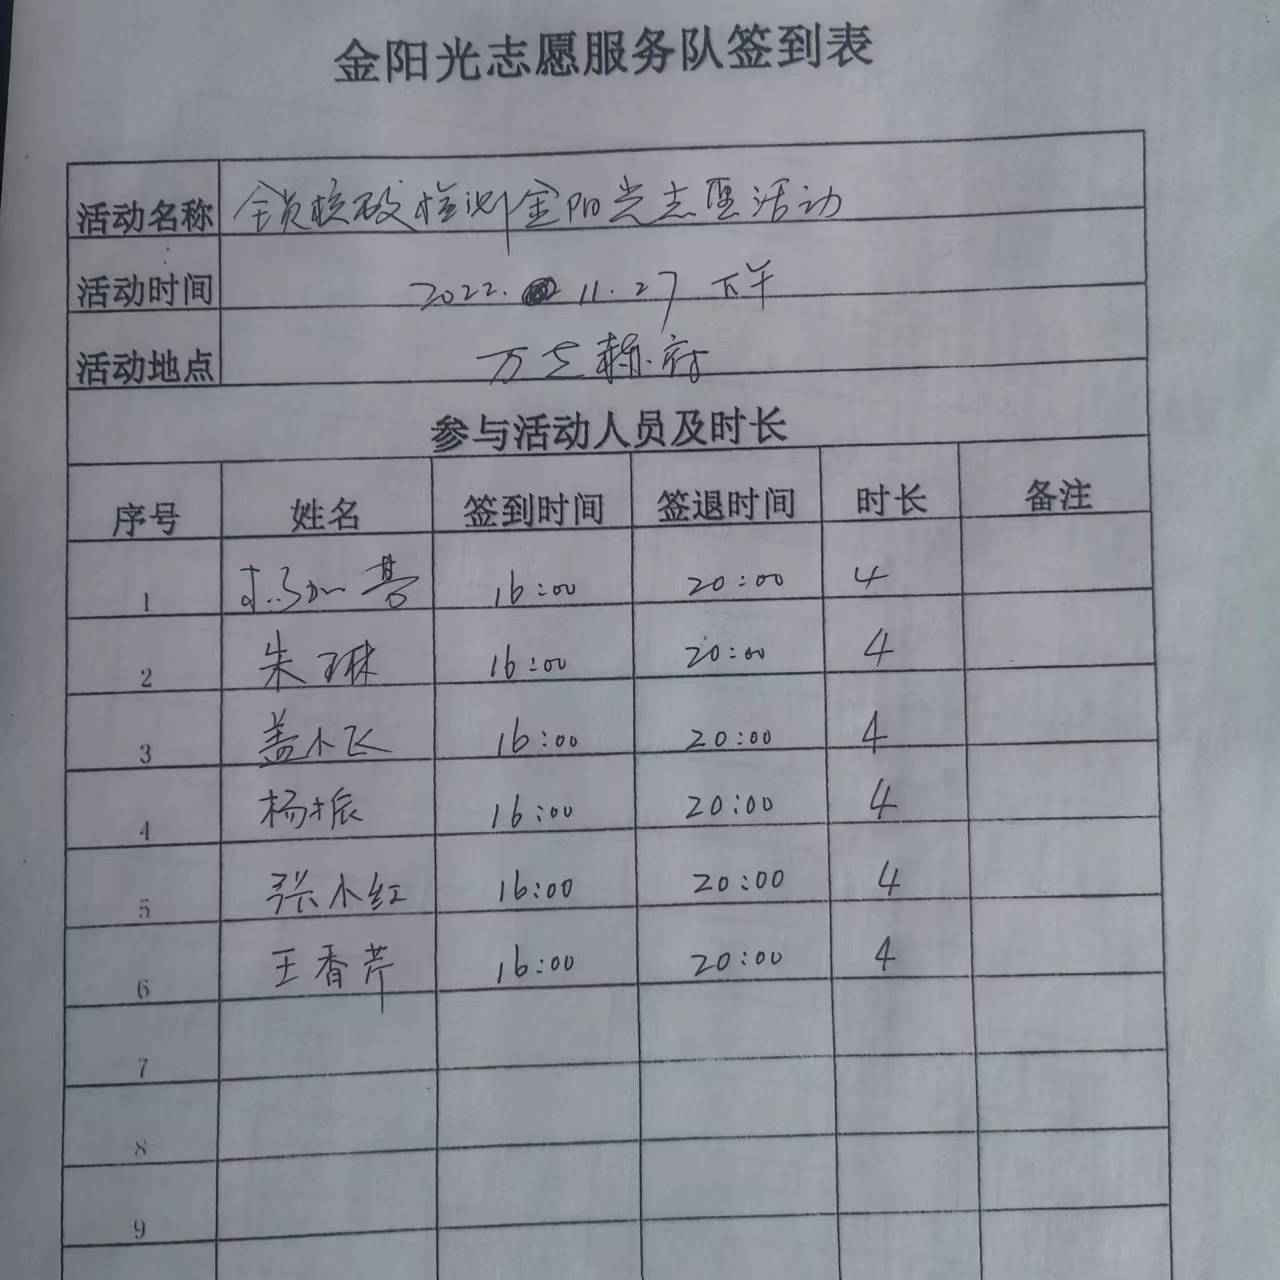 金阳光志愿服务队签到表
活动名称 全员核酸检测金阳光志愿活动
活动时间 2022. 11.27 下午
活动地点 万
参与活动人员及时长
序号 姓名 签到时间 签退时间 时长 备注
1 16:00 20:00 4
2 朱琳 16:00 20:00 4
3 盖小飞 16:00 20:00 4
4 杨振 16:00 20:00 4
5 张小红 16:00 20:00 4
6 王香芹 16:00 20:00 4
7
8
9